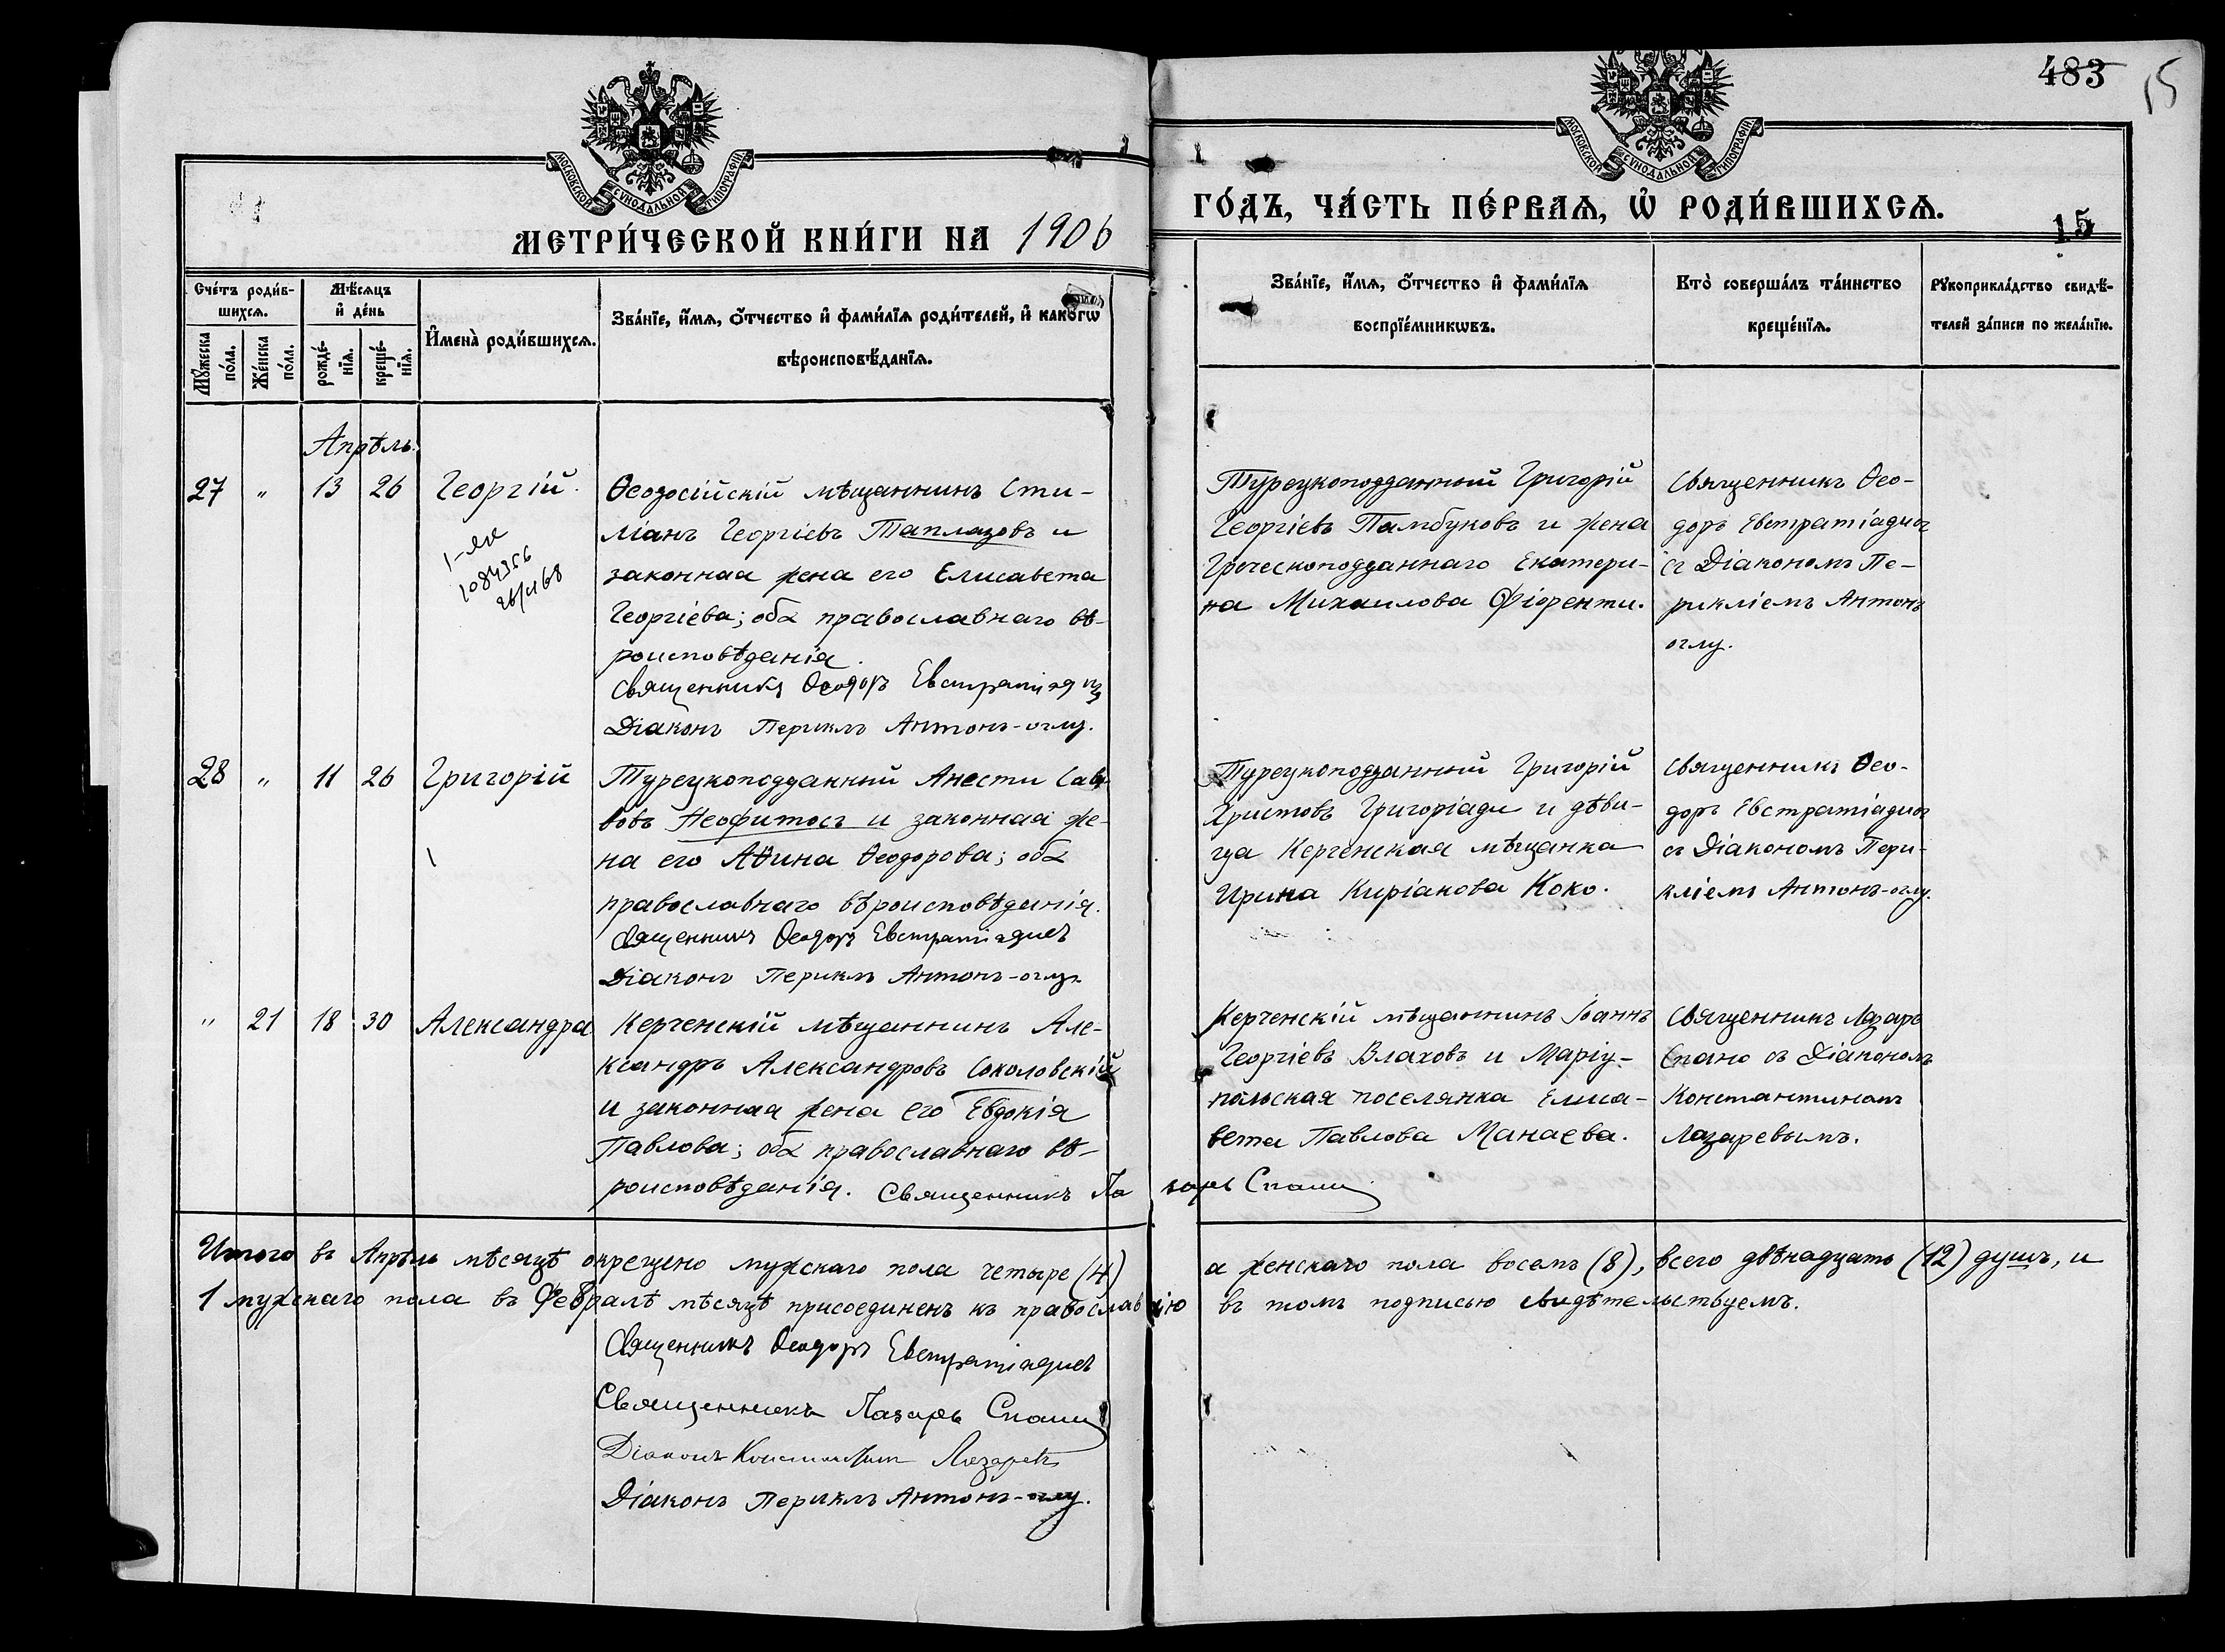 483
15
МОСКОВСКОЙ СѴНОДАЛЬНОЙ ТИПОГРАФІИ
МОСКОВСКОЙ СѴНОДАЛЬНОЙ ТИПОГРАФІИ
МЕТРИ́ЧЕСКОЙ КНИ́ГИ НА 1906
ГО́ДЪ, ЧА́СТЬ ПЕ́РВАЯ, Ѡ РОДИ́ВШИХСЯ.
15
Сче́тъ роди́в-
шихся.
Мѣ́сяцъ
и де́нь
Мꙋ́жеска
по́ла.
Же́нска
по́ла.
рожде́-
нїя.
креще́-
нїя.
Имена̀ роди́вшихся.
Зва́нїе, и́мя, о́тчество и фами́лїя роди́телей, и како́гѡ
вѣроисповѣ́данїя.
Зва́нїе, и́мя, о́тчество и фами́лїя
воспрїе́мникѡвъ.
Кто̀ соверша́лъ та́инство
креще́нїя.
Рꙋкоприкла́дство свидѣ́-
телей за́писи по жела́нїю.
Апрѣль.
27 " 13 26 Георгій.
1-ое
1084356
Ѳеодосійскій мѣщаннинъ Сти-
ліанъ Георгіевъ Таплазовъ и
законная жена его Елисавета
Георгіева; оба православнаго вѣ-
роисповѣданія.
Священникъ Ѳеодоръ Евстратіадисъ
Діаконъ Периклъ Антонъ-оглу.
Турецкоподданный Григорій
Георгіевъ Памбуковъ и жена
Греческоподданнаго Екатери-
на Михаилова Фіоренти.
Священникъ Ѳео-
доръ Евстратіадисъ
съ Діакономъ Пе-
рикліемъ Антонъ
оглу.
28 " 11 26 Григорій
Турецкоподданный Анести Сав-
вовъ Неофитосъ и законная же-
на его Аѳина Ѳеодорова; оба
православнаго вѣроисповѣданія.
Священникъ Ѳеодоръ Евстратіадисъ
Діаконъ Периклъ Антонъ-оглу.
Турецкоподданный Григорій
Христовъ Григоріади и дѣви-
ца Керченская мѣщанка
Ирина Киріакова Коко.
Священникъ Ѳео-
доръ Евстратіадисъ
съ Діакономъ Пери-
кліемъ Антонъ-оглу.
" 21 18 30 Александра
Керченскій мѣщаннинъ Але-
ксандръ Александровъ Соколовскій
и законная жена его Евдокія
Павлова; оба православнаго вѣ-
роисповѣданія. Священникъ Лазарь Спано
Керченскій мѣщаннинъ Іоаннъ
Георгіевъ Влаховъ и Маріу-
польская поселянка Елиса-
вета Павлова Манаева.
Священникъ Лазарь
Спано съ Діакономъ
Константиномъ
Лазаревымъ.
Итого въ Апрѣль мѣсяцѣ окрещено мужскаго пола четыре (4) а женскаго пола восемь (8), всего двѣнадцать (12) душъ, и
1 мужскаго пола въ Февралѣ мѣсяцѣ присоединенъ къ православію въ томъ подписью свидѣтельствуемъ.
Священникъ Ѳеодоръ Евстратіадисъ
Священникъ Лазарь Спано
Діаконъ Константинъ Лазаревъ
Діаконъ Периклъ Антонъ-оглу.